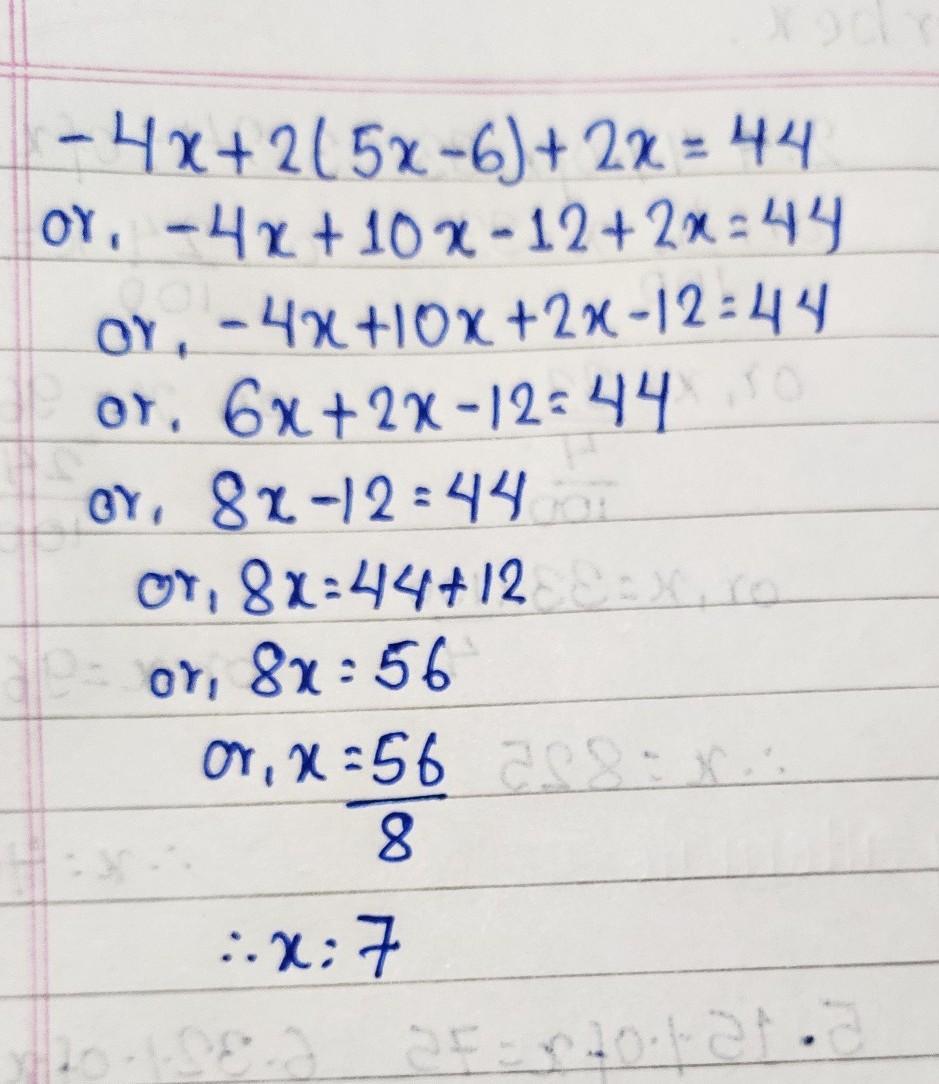 -4x+2(5x-6)+2x=44
or, -4x+10x-12+2x=44
or, -4x+10x+2x-12=44
or, 6x+2x-12=44
or, 8x-12=44
or, 8x=44+12
or, 8x=56
or, x=56/8
∴x=7